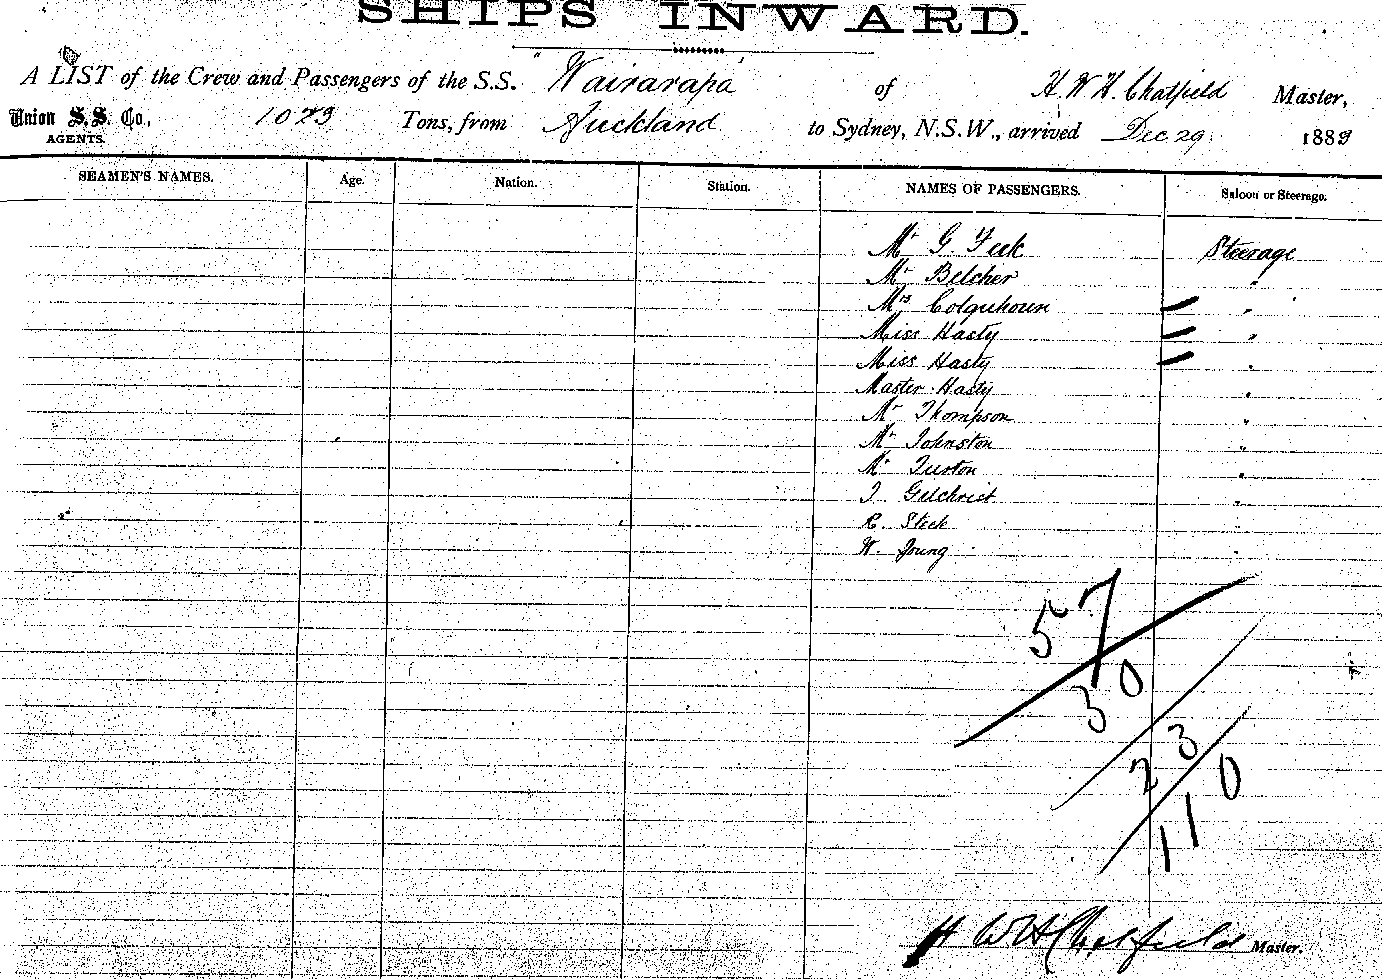 SHIPS INWARD.
A LIST of the Crew and Passengers of the S.S. "Wairarapa" of H. W. H. Chatfield Master,
Union S.S. Co., AGENTS. 1023 Tons, from Auckland to Sydney, N.S.W., arrived Dec 29. 1889
SEAMEN'S NAMES. Age. Nation. Station. NAMES OF PASSENGERS. Saloon or Steerage.
Mr G. Steerage
Mr Belcher "
Mrs Colquhoun "
Miss Hasty "
Miss Hasty "
Master Hasty "
Mr Thompson "
Mr Johnston "
Mr "
J Gilchrist "
R. Steek "
W. Young "
57
30
23
110
H W H Chatfield Master.